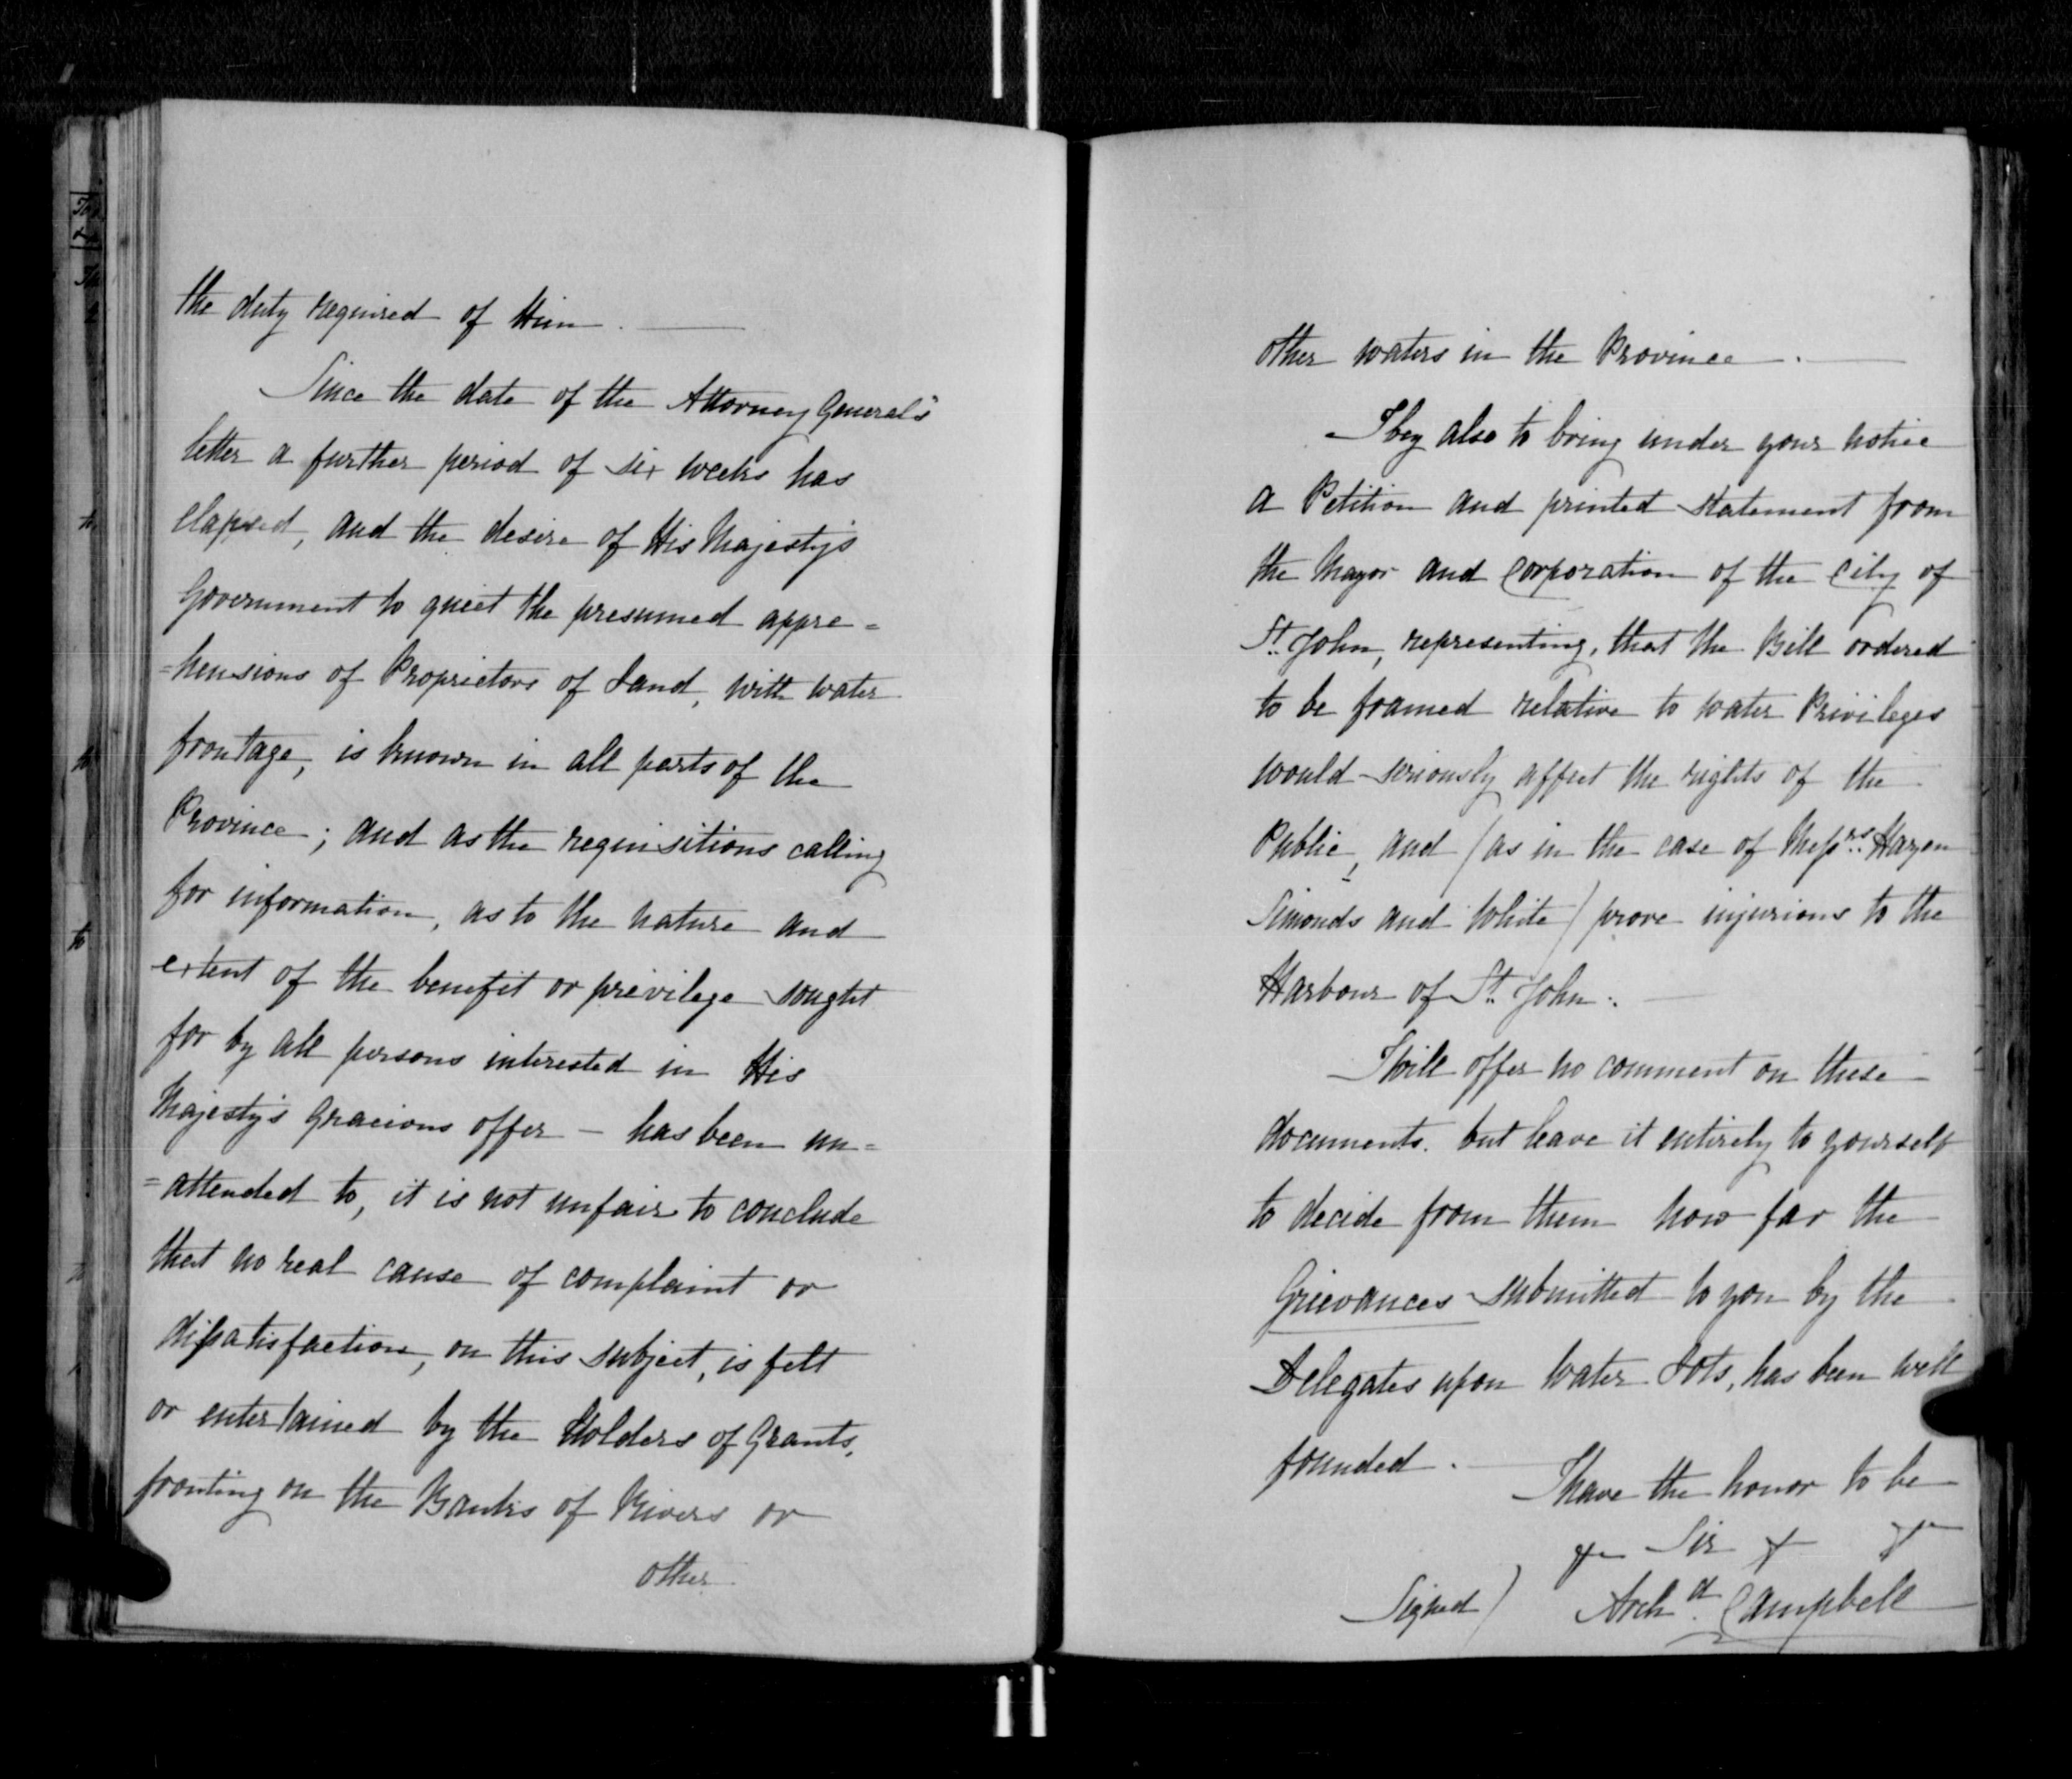 the duty required of Him.
Since the date of the Attorney General's
letter a further period of six weeks has
elapsed, and the desire of His Majesty's
Government to quiet the presumed appre=
=hensions of Proprietors of Land, with water
frontage, is known in all parts of the
Province; and as the requisitions calling
for information, as to the nature and
extent of the benefit or privilege sought
for by all persons interested in His
Majesty's Gracious offer — has been un=
=attended to, it is not unfair to conclude
that no real cause of complaint or
dissatisfaction, on this subject, is felt
or entertained by the Holders of Grants,
fronting on the Banks of Rivers or
other
other waters in the Province.
I beg also to bring under your notice
a Petition and printed statement from
the Mayor and Corporation of the City of
St. John, representing, that the Bill ordered
to be framed relative to water Privileges
would seriously affect the rights of the
Public, and (as in the case of Messrs. Hazen
Simonds and White) prove injurious to the
Harbour of St. John.
I will offer no comment on these
documents. but leave it entirely to yourself
to decide from them how far the
Grievances submitted to you by the
Delegates upon Water Lots, has been well
founded.
I have the honor to be
Sir
Signed) Archd. Campbell